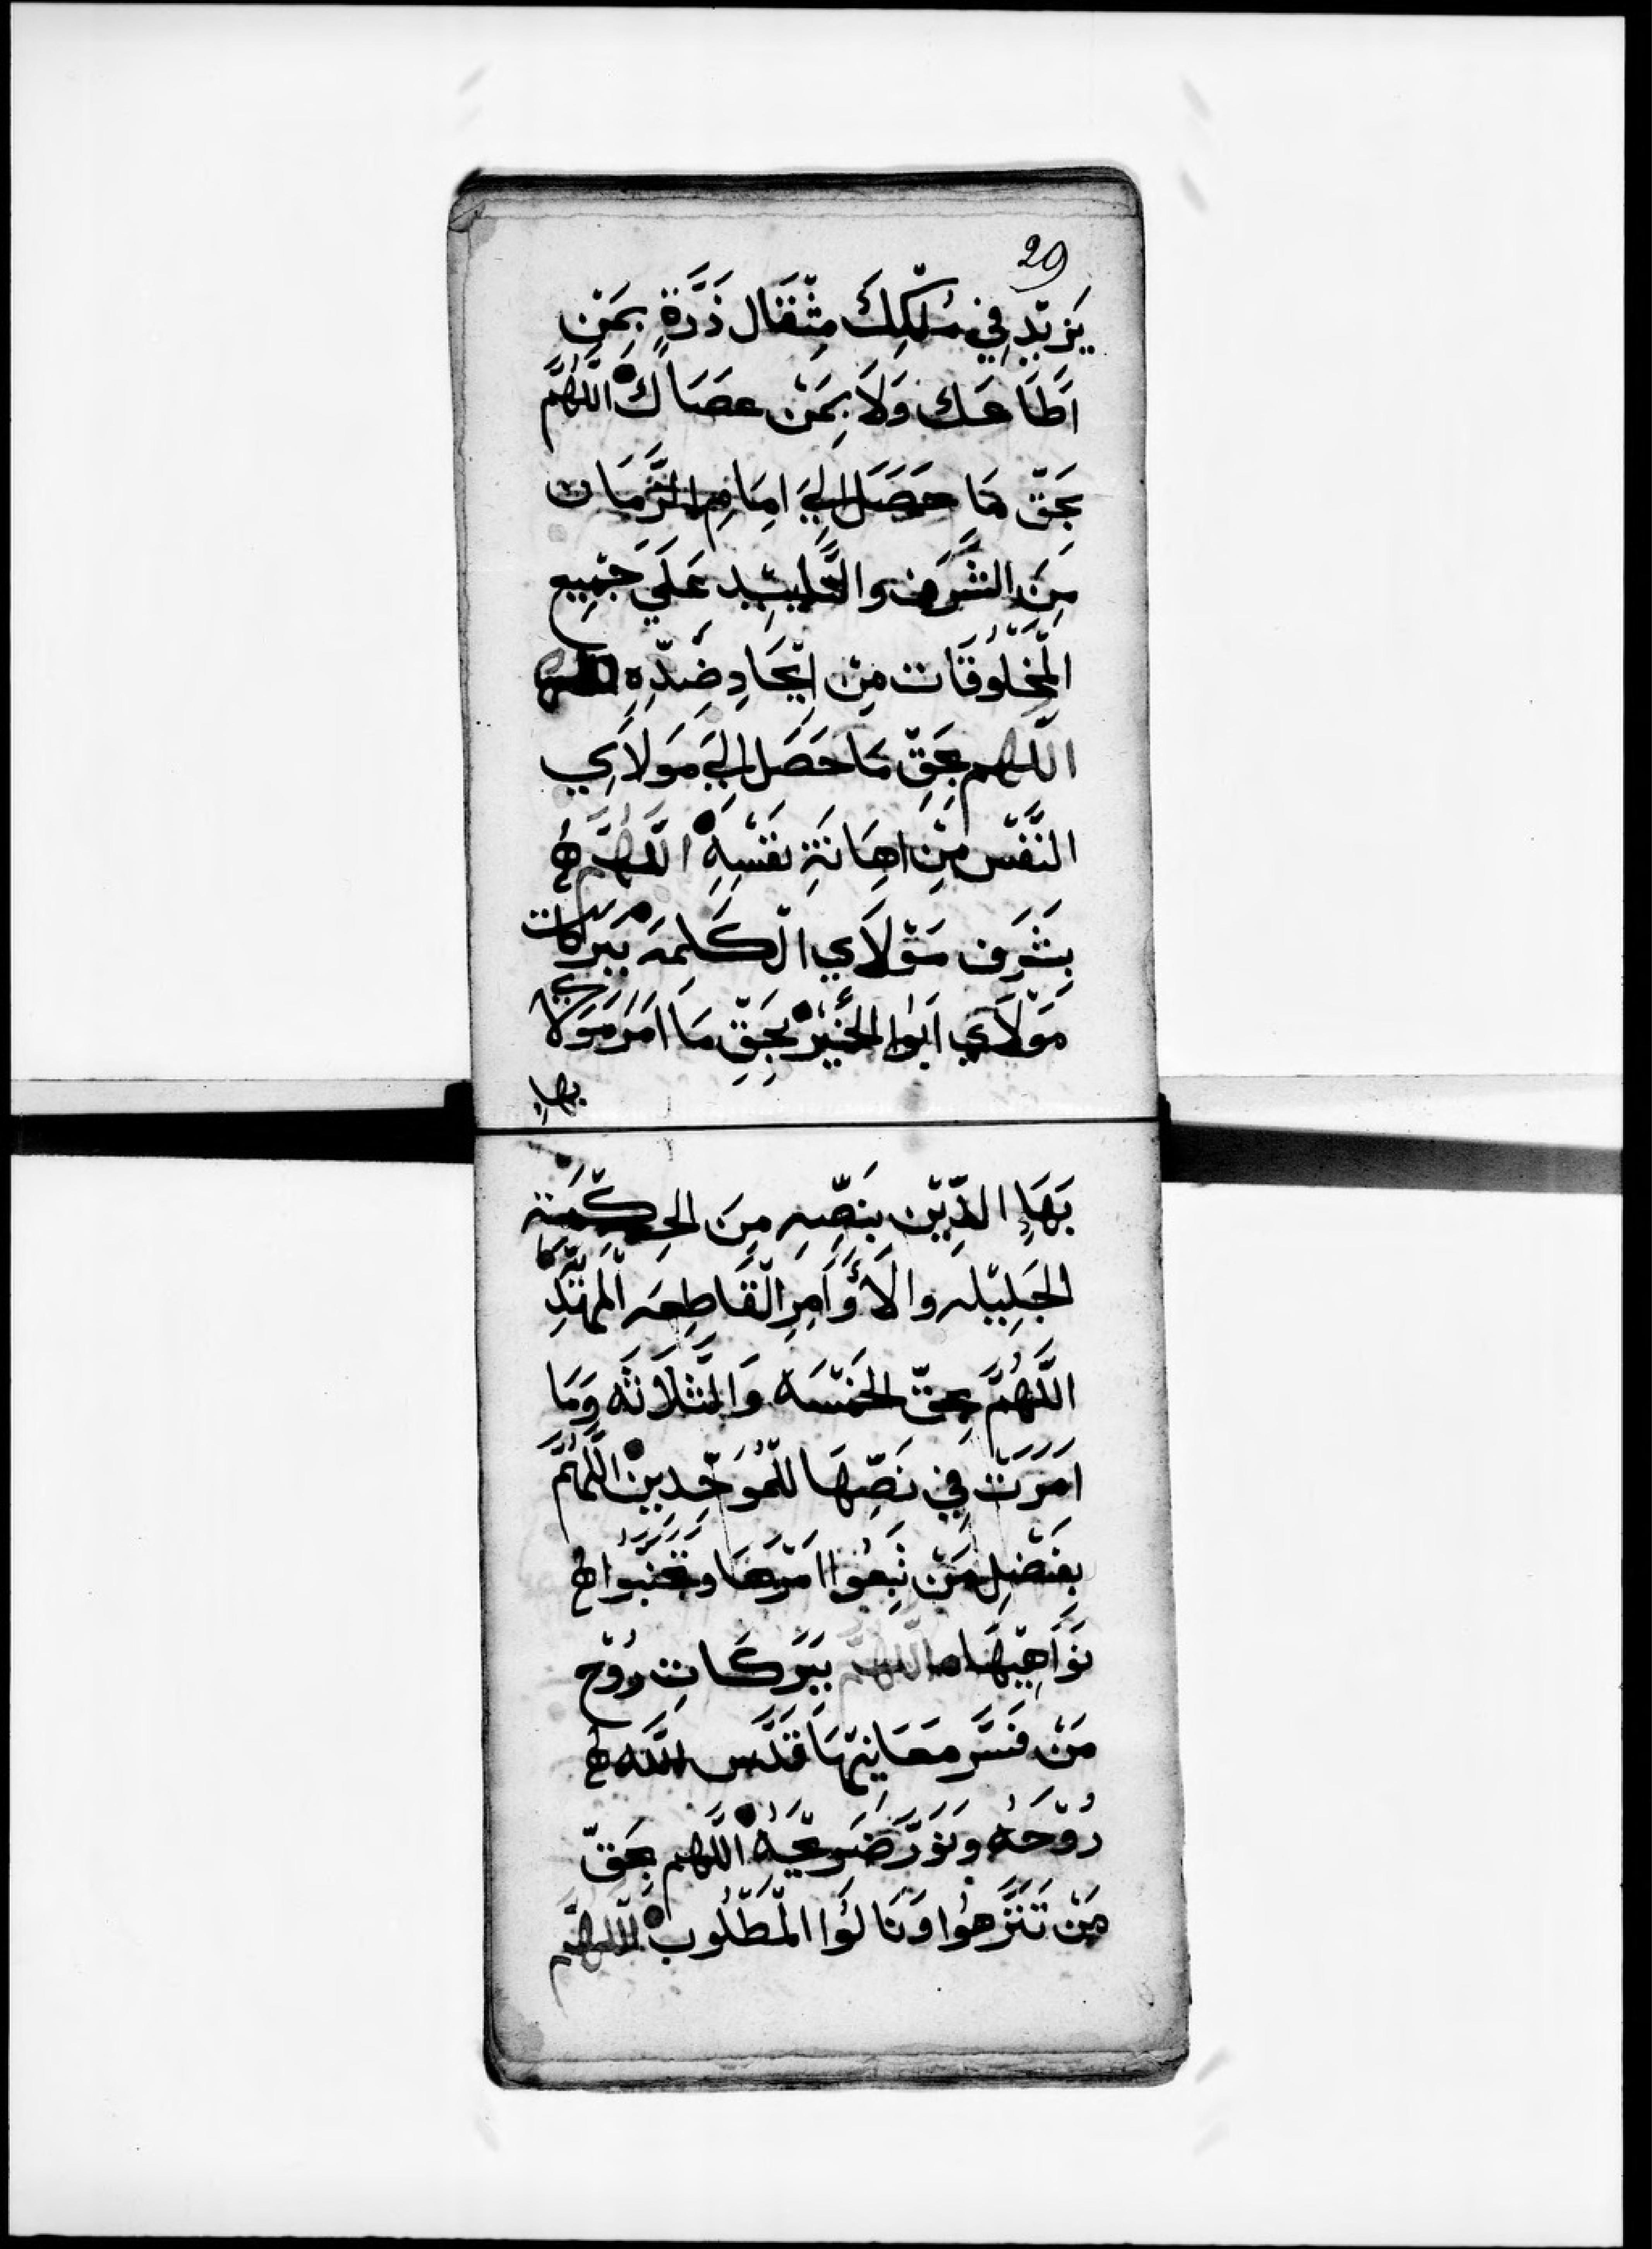 29
يَزِيْد فِي مُلْكِكَ مِثْقَال ذَرَّةٍ بِمَنْ
اَطَاعَك وَلَا بِمَنْ عَصَاكْ اللَّهُمَّ
بحَقّ مَا حَصَلَ اليَ امَامِ الزَّمَان
مِنَ الشَّرَف والتَّأييد عَلَي جَمِيع
المَخْلُوقَات مِنْ اِيْجَادِ ضِدِّهِ
اللهم بحَقِّ مَا حَصَلَ اليَ مَوْلَاي
النَّفْس مِنْ اهَانَةِ نَفْسِهِ اللَّهُمَّ
بِشَرَف مَوْلَاي الْكَلِمَه بَبَرَكَات
مَوْلَاي اَبوُا الخَيْرْ بحَقِّ مَا امَرَ مَوْلَاي
بها
بَهَاءِ الدِّيْن بنَصِّهِ مِنَ الحِكْمَة
الجَلِيْلَه والَأوَامِرِ القَاطِعَه
اللَّهُمَّ بحقّ الخَمْسَه وَالثَّلَاثَه وَمَا
اَمَرَتْ فِي نَصِّهَا للْمُوَحِّدِينْ اللَّهُمَّ
بِفَضْلِ مَنْ تَبِعُوا اَمْرَهَا وَتَجَنَّبُوا
نَوَاهِيْهَا اللهمَّ بِبَرَكَاتِ رُوْح
مَنْ فَسَّر مَعَانِيْهَا قَدَّس اللَّه
رُوْحَهُ ونَوَّرَ ضَرِيحَهُ اللَّهم بحَقّ
مَنْ تَنَزَّهوُا وَنَالُوا المَطْلُوبْ اللّهمَّ